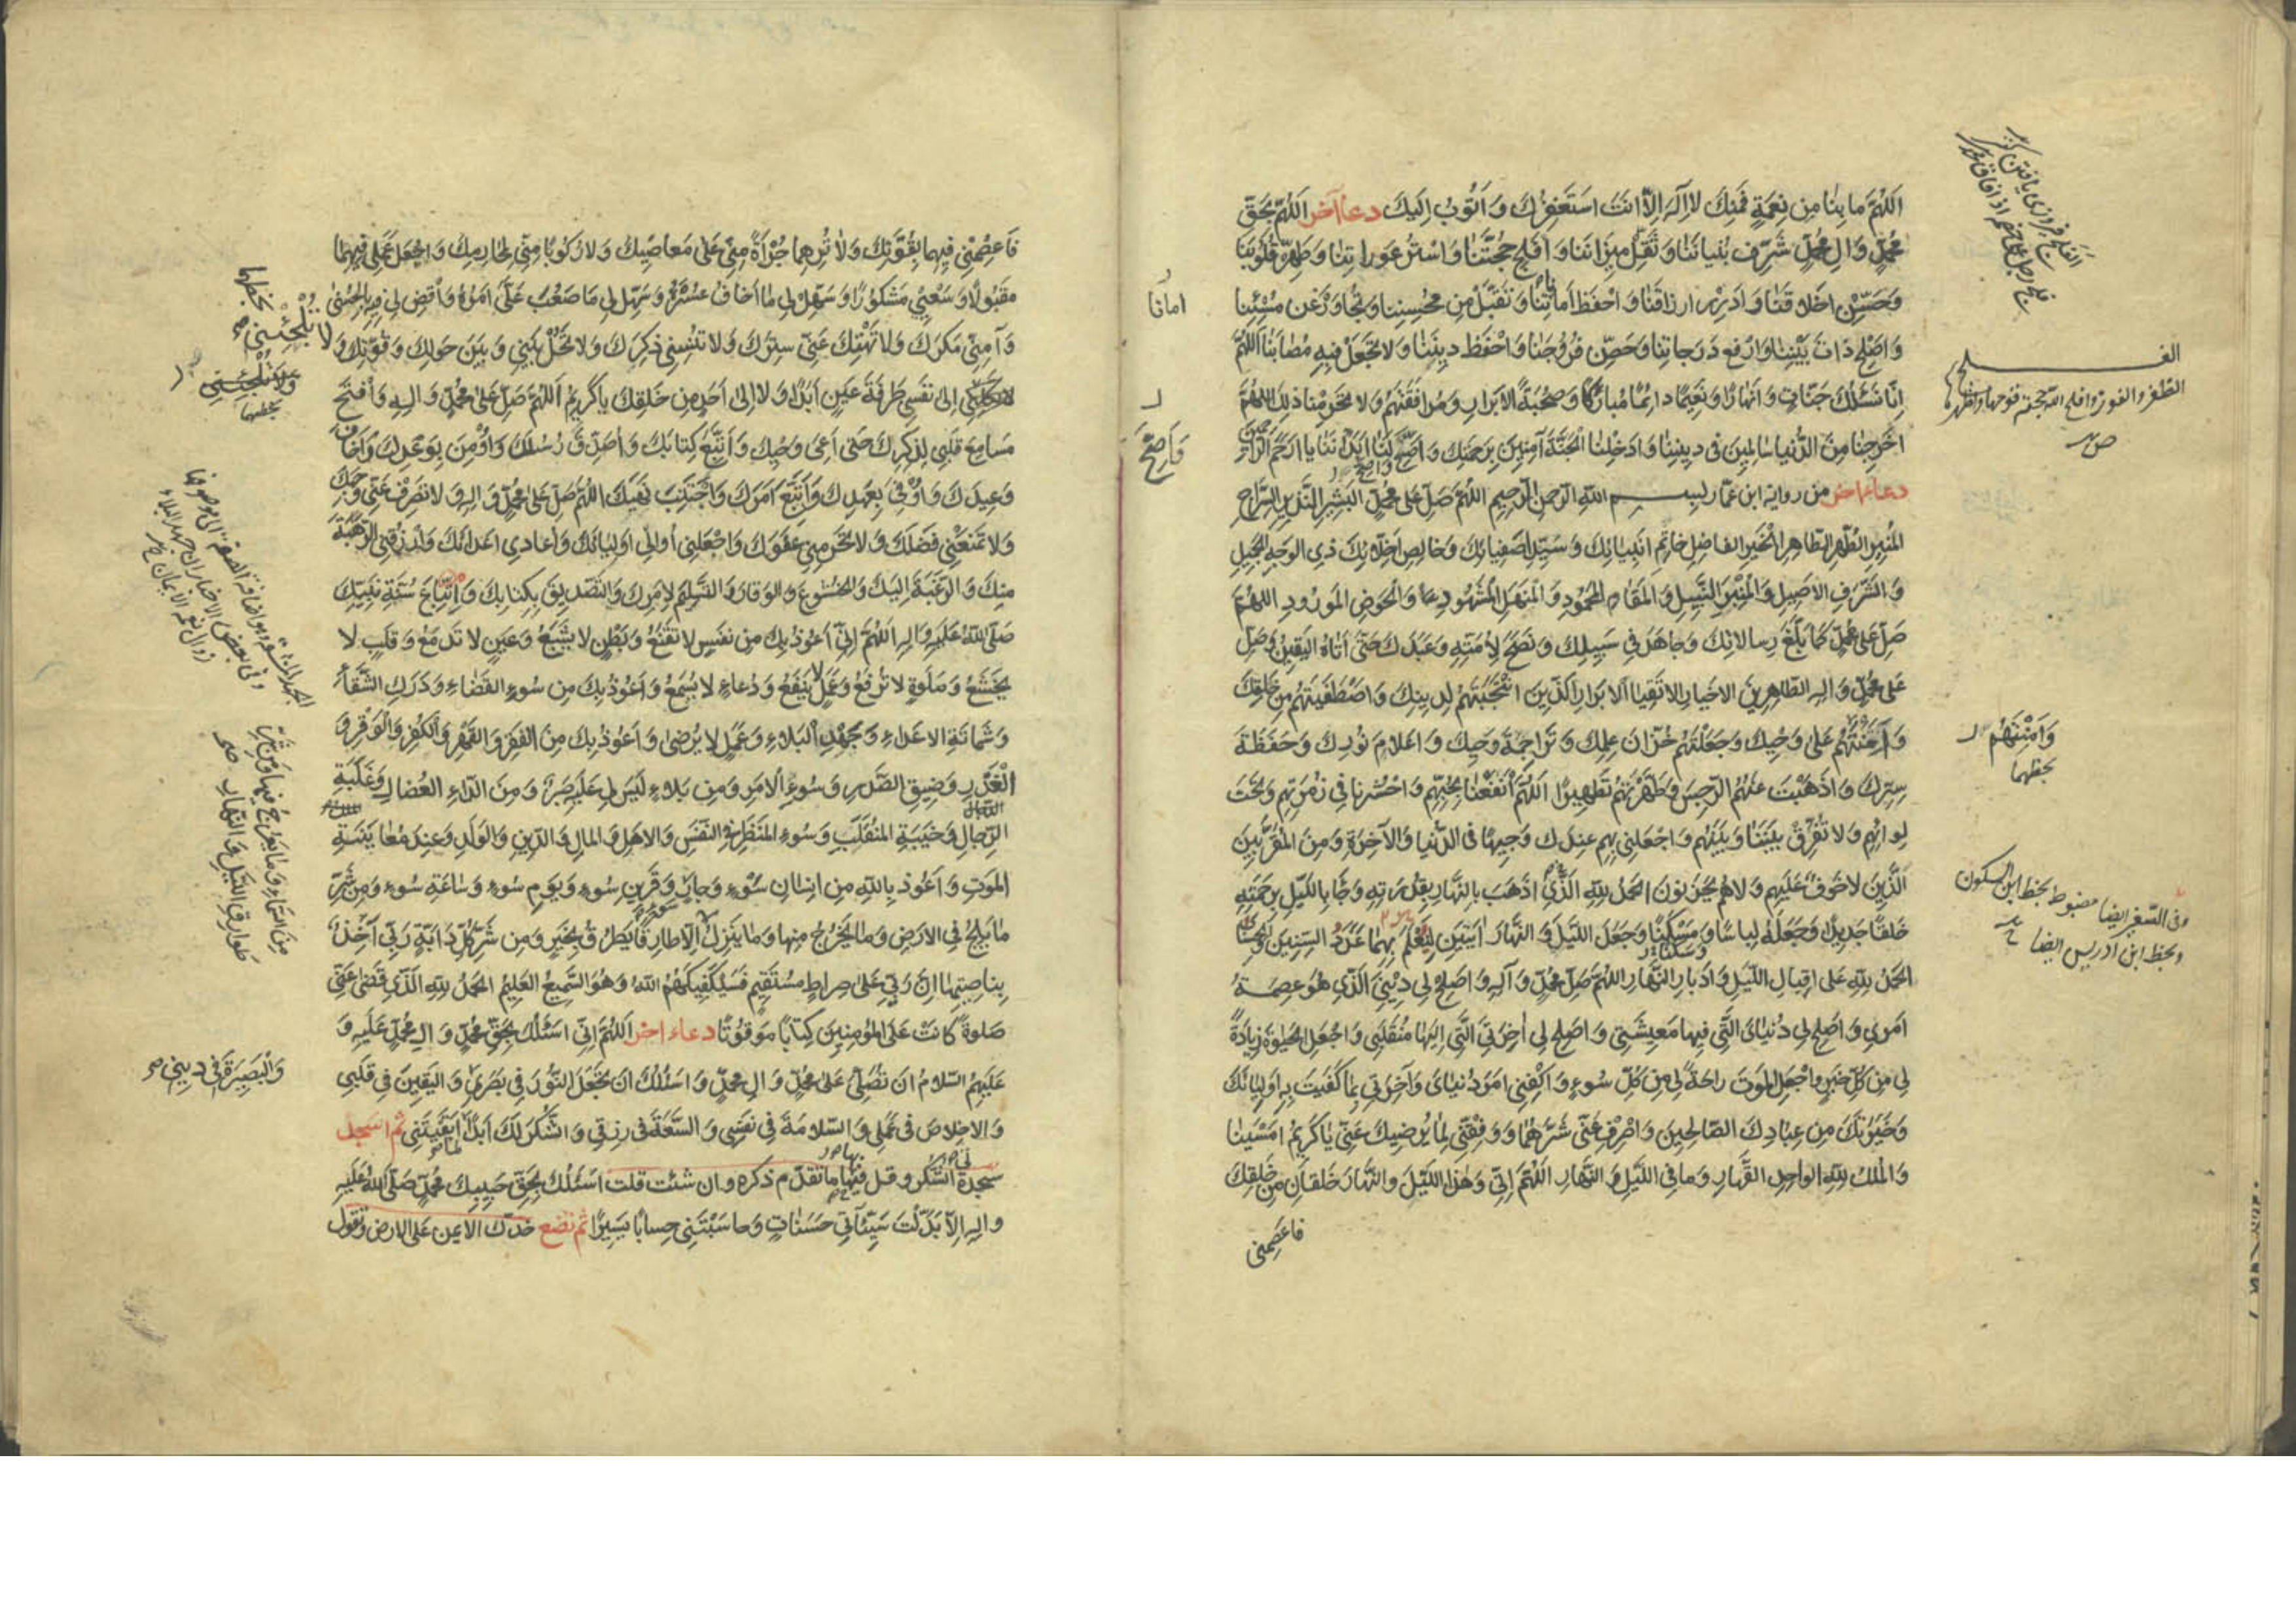 اَللّٰهُمَّ ما بِنا مِن نِعمَةٍ فَمِنكَ لا اِلٰهَ اِلّا اَنتَ اَستَغفِرُكَ وَاَتُوبُ اِلَيكَ دعاء آخر اَللّٰهُمَّ بِحَقِّ
مُحَمَّدٍ وَآلِ مُحَمَّدٍ شَرِّف بُنيانَنا وَثَقِّل ميزانَنا وَاَفلِج حُجَّتَنا وَاستُر عَوراتِنا وَطَهِّر قُلُوبَنا
وَحَسِّن اَخلاقَنا وَاَدرِر اَرزاقَنا وَاحفَظ اَماناتِنا وَتَقَبَّل مِن مُحسِنِنا وَتَجاوَز عَن مُسيئِنا
وَاَصلِح ذاتَ بَينِنا وَارفَع دَرَجاتِنا وَحَصِّن فُرُوجَنا وَاحفَظ دينَنا وَلا تَجعَل فيهِ مُصابَنا اَللّٰهُمَّ
اِنّا نَسئَلُكَ جَنّاتٍ وَاَنهارًا وَنَعيمًا دائِمًا مُبارَكًا وَصُحبَةَ الاَبرارِ وَمُرافَقَتَهُم وَلا تَحرِمنا ذٰلِكَ اَللّٰهُمَّ
اَخرِجنا مِنَ الدُّنيا سالِمينَ فى دينِنا وَاَدخِلنَا الجَنَّةَ آمِنينَ بِرَحمَتِكَ وَاَصِحَّ لَنا اَبدانَنا يا اَرحَمَ الرّاحِمينَ
دعاء اخر من رواية ابن عمار بسم الله الرحمن الرحيم اَللّٰهُمَّ صَلِّ عَلى مُحَمَّدٍ البَشيرِ النَّذيرِ السِّراجِ
المُنيرِ الطُّهرِ الطّاهِرِ الخَيرِ الفاضِلِ خاتَمِ اَنبِيائِكَ وَسَيِّدِ اَصفِيائِكَ وَخالِصِ اَخِلّائِكَ ذِى الوَجهِ الجَميلِ
وَالشَّرَفِ الاَصيلِ وَالمِنبَرِ النَّبيلِ وَالمَقامِ المَحمُودِ وَالمَنهَلِ المَشهُودِ وَالحَوضِ المَورُودِ اَللّٰهُمَّ
صَلِّ عَلى مُحَمَّدٍ كَما بَلَّغَ رِسالاتِكَ وَجاهَدَ فى سَبيلِكَ وَنَصَحَ لِاُمَّتِهِ وَعَبَدَكَ حَتّى اَتاهُ اليَقينُ وَصَلِّ
عَلى مُحَمَّدٍ وَآلِهِ الطّاهِرينَ الاَخيارِ الاَتقِياءِ الاَبرارِ الَّذينَ انتَجَبتَهُم لِدينِكَ وَاصطَفَيتَهُم مِن خَلقِكَ
وَائتَمَنتَهُم عَلى وَحيِكَ وَجَعَلتَهُم خُزّانَ عِلمِكَ وَتَراجِمَةَ وَحيِكَ وَاَعلامَ نُورِكَ وَحَفَظَةَ
سِرِّكَ وَاَذهَبتَ عَنهُمُ الرِّجسَ وَطَهَّرتَهُم تَطهيرًا اَللّٰهُمَّ انفَعنا بِحُبِّهِم وَاحشُرنا فى زُمرَتِهِم وَتَحتَ
لِوائِهِم وَلا تُفَرِّق بَينَنا وَبَينَهُم وَاجعَلنى بِهِم عِندَكَ وَجيهًا فِى الدُّنيا وَالآخِرَةِ وَمِنَ المُقَرَّبينَ
الَّذينَ لا خَوفٌ عَلَيهِم وَلا هُم يَحزَنُونَ اَلحَمدُ لِلّٰهِ الَّذى اَذهَبَ بِالنَّهارِ بِقُدرَتِهِ وَجاءَ بِاللَّيلِ بِرَحمَتِهِ
خَلقًا جَديدًا وَجَعَلَهُ لِباسًا وَمَسكَنًا وَجَعَلَ اللَّيلَ وَالنَّهارَ آيَتَينِ لِيُعلَمَ بِهِما عَدَدُ السِّنينَ وَالحِسابُ
اَلحَمدُ لِلّٰهِ عَلى اِقبالِ اللَّيلِ وَاِدبارِ النَّهارِ اَللّٰهُمَّ صَلِّ عَلى مُحَمَّدٍ وَآلِهِ وَاَصلِح لى دينِىَ الَّذى هُوَ عِصمَةُ
اَمرى وَاَصلِح لى دُنياىَ الَّتى فيها مَعيشَتى وَاَصلِح لى آخِرَتِىَ الَّتى اِلَيها مُنقَلَبى وَاجعَلِ الحَيوةَ زِيادَةً
لى مِن كُلِّ خَيرٍ وَاجعَلِ المَوتَ راحَةً لى مِن كُلِّ سُوءٍ وَاكفِنى اَمرَ دُنياىَ وَآخِرَتى بِما كَفَيتَ بِهِ اَولِياءَكَ
وَخِيَرَتَكَ مِن عِبادِكَ الصّالِحينَ وَاصرِف عَنّى شَرَّهُما وَوَفِّقنى لِما يُرضيكَ عَنّى يا كَريمُ اَمسَينا
وَالمُلكُ لِلّٰهِ الواحِدِ القَهّارِ وَما فِى اللَّيلِ وَالنَّهارِ اَللّٰهُمَّ اِنّى وَهٰذَا اللَّيلَ وَالنَّهارَ خَلقانِ مِن خَلقِكَ
فاعصِمنى
امانا
وَاَصِحَّ
وَاَمَّنتَهُم
بخطهما
وفى التسغير ايضا مضبوط بخط ابن السكون
وبخط ابن ادريس ايضا
فَاعصِمنى فيهِما بِقُوَّتِكَ وَلا تُرِهِما جُرأَةً مِنّى عَلى مَعاصيكَ وَلا رُكُوبًا مِنّى لِمَحارِمِكَ وَاجعَل عَمَلى فيهِما
مَقبُولًا وَسَعيى مَشكُورًا وَسَهِّل لى ما اَخافُ عُسرَهُ وَسَهِّل لى ما صَعُبَ عَلَىَّ اَمرُهُ وَاقضِ لى فيهِ بِالحُسنى
وَآمِنّى مَكرَكَ وَلا تَهتِك عَنّى سِترَكَ وَلا تُنسِنى ذِكرَكَ وَلا تَحُل بَينى وَبَينَ حَولِكَ وَقُوَّتِكَ وَ
لا تَكِلنى اِلى نَفسى طَرفَةَ عَينٍ اَبَدًا وَلا اِلى اَحَدٍ مِن خَلقِكَ يا كَريمُ اَللّٰهُمَّ صَلِّ عَلى مُحَمَّدٍ وَآلِهِ وَافتَح
مَسامِعَ قَلبى لِذِكرِكَ حَتّى اَعِىَ وَحيَكَ وَاَتَّبِعَ كِتابَكَ وَاُصَدِّقَ رُسُلَكَ وَاُؤمِنَ بِوَعدِكَ وَاَخافَ
وَعيدَكَ وَاُوفِىَ بِعَهدِكَ وَاَتَّبِعَ اَمرَكَ وَاَجتَنِبَ نَهيَكَ اَللّٰهُمَّ صَلِّ عَلى مُحَمَّدٍ وَآلِهِ وَلا تَصرِف عَنّى وَجهَكَ
وَلا تَمنَعنى فَضلَكَ وَلا تَحرِمنى عَفوَكَ وَاجعَلنى اُوالى اَولِياءَكَ وَاُعادى اَعداءَكَ وَارزُقنِى الرَّهبَةَ
مِنكَ وَالرَّغبَةَ اِلَيكَ وَالخُشُوعَ وَالوَقارَ وَالتَّسليمَ لِاَمرِكَ وَالتَّصديقَ بِكِتابِكَ وَاتِّباعَ سُنَّةِ نَبِيِّكَ
صَلَّى اللّٰهُ عَلَيهِ وَآلِهِ اَللّٰهُمَّ اِنّى اَعُوذُ بِكَ مِن نَفسٍ لا تَقنَعُ وَبَطنٍ لا يَشبَعُ وَعَينٍ لا تَدمَعُ وَقَلبٍ لا
يَخشَعُ وَصَلوةٍ لا تُرفَعُ وَعَمَلٍ لا يَنفَعُ وَدُعاءٍ لا يُسمَعُ وَاَعُوذُ بِكَ مِن سُوءِ القَضاءِ وَدَرَكِ الشَّقاءِ
وَشَماتَةِ الاَعداءِ وَجَهدِ البَلاءِ وَعَمَلٍ لا يُرضى وَاَعُوذُ بِكَ مِنَ الفَقرِ وَالقَهرِ وَالكُفرِ وَالوَقرِ وَ
الغَدرِ وَضيقِ الصَّدرِ وَسُوءِ الاَمرِ وَمِن بَلاءٍ لَيسَ لى عَلَيهِ صَبرٌ وَمِنَ الدّاءِ العُضالِ وَغَلَبَةِ
الرِّجالِ وَخَيبَةِ المُنقَلَبِ وَسُوءِ المَنظَرِ فِى النَّفسِ وَالاَهلِ وَالمالِ وَالدّينِ وَالوَلَدِ وَعِندَ مُعايَنَةِ
المَوتِ وَاَعُوذُ بِاللّٰهِ مِن اِنسانِ سُوءٍ وَجارِ سُوءٍ وَقَرينِ سُوءٍ وَيَومِ سُوءٍ وَساعَةِ سُوءٍ وَمِن شَرِّ
ما يَلِجُ فِى الاَرضِ وَما يَخرُجُ مِنها وَما يَنزِلُ اِلّا طارِقًا يَطرُقُ بِخَيرٍ وَمِن شَرِّ كُلِّ دابَّةٍ رَبّى آخِذٌ
بِناصِيَتِها اِنَّ رَبّى عَلى صِراطٍ مُستَقيمٍ فَسَيَكفيكَهُمُ اللّٰهُ وَهُوَ السَّميعُ العَليمُ اَلحَمدُ لِلّٰهِ الَّذى قَضى عَنّى
صَلوةً كانَت عَلَى المُؤمِنينَ كِتابًا مَوقُوتًا دعاء اخر اَللّٰهُمَّ اِنّى اَسئَلُكَ بِحَقِّ مُحَمَّدٍ وَآلِ مُحَمَّدٍ عَلَيهِ وَ
عَلَيهِمُ السَّلامُ اَن تُصَلِّىَ عَلى مُحَمَّدٍ وَآلِ مُحَمَّدٍ وَاَسئَلُكَ اَن تَجعَلَ النُّورَ فى بَصَرى وَاليَقينَ فى قَلبى
وَالاِخلاصَ فى عَمَلى وَالسَّلامَةَ فى نَفسى وَالسَّعَةَ فى رِزقى وَالشُّكرَ لَكَ اَبَدًا ما اَبقَيتَنى ثم اسجد
سجدة الشكر وقل فيها ما تقدم ذكره وان شئت قلت اَسئَلُكَ بِحَقِّ حَبيبِكَ مُحَمَّدٍ صَلَّى اللّٰهُ عَلَيهِ
وَآلِهِ اِلّا بَدَّلتَ سَيِّئاتى حَسَناتٍ وَحاسَبتَنى حِسابًا يَسيرًا ثم تضع خدك الايمن على الارض وتقول
بخطهما
لا تُلجِئنى
بخطهما
مِنَ السَّماءِ وَما يَعرُجُ فيها وَمِن شَرِّ
طَوارِقِ اللَّيلِ وَالنَّهارِ
وَالبَصيرَةَ فى دينى